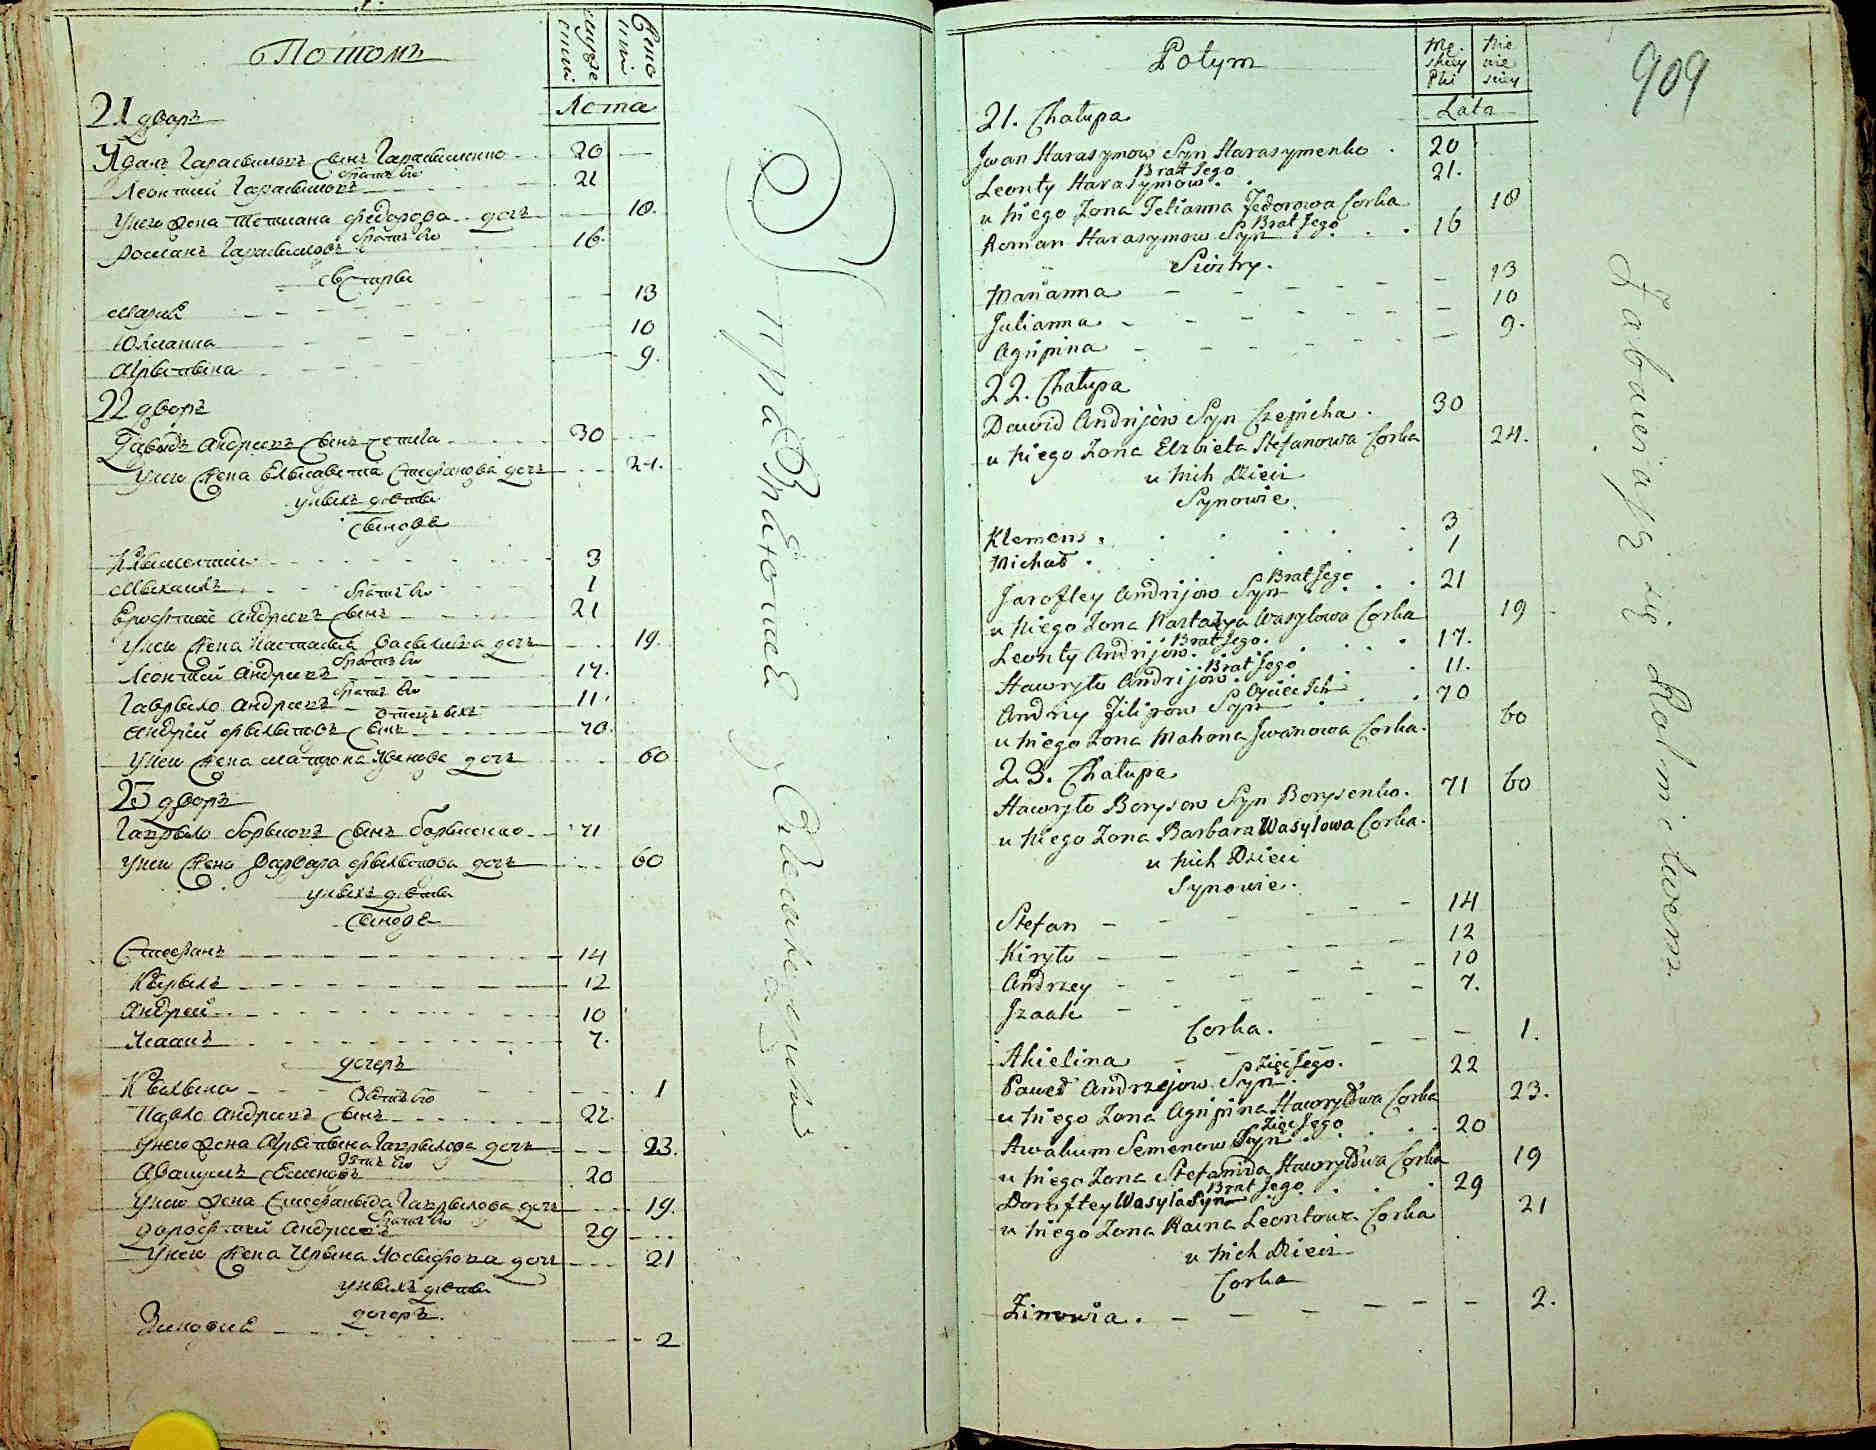 Потомъ
мужеские
женские
Лета
21 дворъ
Иванъ Гарасымовъ сынъ Гарасыменко 20
Леонтий Гарасымовъ братъ его 21
У него жена Тетиана Федорова дочь 18.
Романъ Гарасымовъ братъ его 16.
сестры
Мария 13
Юлианна 10
Агрыпына 9.
22 дворъ
Давыдъ Андриевъ сынъ Чепиха 30
У него жена Елысавета Стефанова дочь 24.
у ныхъ деты
сынове
Клыментий 3
Мыхаилъ 1
Ерофтий Андриевъ сынъ братъ его 21
У него жена Настасия Васылиева дочь 19.
Леонтий Андриевъ братъ его 17.
Гаврыло Андриевъ братъ его 11.
Андрей Фылыповъ сынъ отецъ ихъ 70.
У него жена Матрона Иванова дочь 60
23 дворъ
Гаврыло Борысовъ сынъ Борысенко 71
У него жена Варвара Фылыпова дочь 60
у ныхъ деты
сынове
Стефанъ 14
Кырылъ 12
Андрей 10
Исаакъ 7.
дочеръ
Кылына 1
Павло Андриевъ сынъ зять его 22.
У него жена Агрыпына Гаврылова дочь 23.
Авакумъ Семеновъ зять его 20
У него жена Стефаныда Гаврылова дочь 19.
Дорофтей Андриевъ братъ его 29
У него жена Ирына Иосыфова дочь 21
у ныхъ деты
дочеръ.
Зиновия 2
упражняющейся
Potym
Męskiey Płci
Niewieskiey
Lata
909
21. Chałupa
Jwan Harasymow Syn Harasymenko . 20
Leonty Harasymow. Brat Jego 21.
u Niego Zona Tetianna Fedorowa Corka 18
Roman Harasymow Syn Brat Jego 16
Siostry.
Marianna 13
Julianna 10
Agripina 9.
22. Chałupa
Dawid Andrijow Syn Czepicha . 30
u Niego Zona Elzbieta Stefanowa Corka 24.
u Nich Dzieci
Synowie.
Klemens . 3
Michał . 1
Jarofley Andrijow Syn Brat Jego 21
u Niego Zona Nastazya Wasylowa Corka 19
Leonty Andrijow. Brat Jego. 17.
Hawryło Andrijow. Brat Jego 11.
Andriy Filipow Syn Oyciec Jch 70
u Niego Zona Matrona Jwanowa Corka. 60
23. Chałupa
Hawryło Borysow Syn Borysenko. 71 60
u Niego Zona Barbara Wasylowa Corka.
u Nich Dzieci
Synowie.
Stefan 14
Kiryło 12
Andrzey 10
Jzaak 7.
Corka.
Akielina 1.
Paweł Andrzejow Syn Zięć Jego. 22
u Niego Zona Agripina Hawryłowa Corka 23.
Awakum Semenow Syn Zięć Jego 20
u Niego Zona Stefanida Hawryłowa Corka 19
Doroftey Wasyla Syn Brat Jego 29
u Niego Zona Raina Leontowa Corka 21
u Nich Dzieci
Corka
Zinowia . 2.
Zabawiaiący się Rolnictwem.